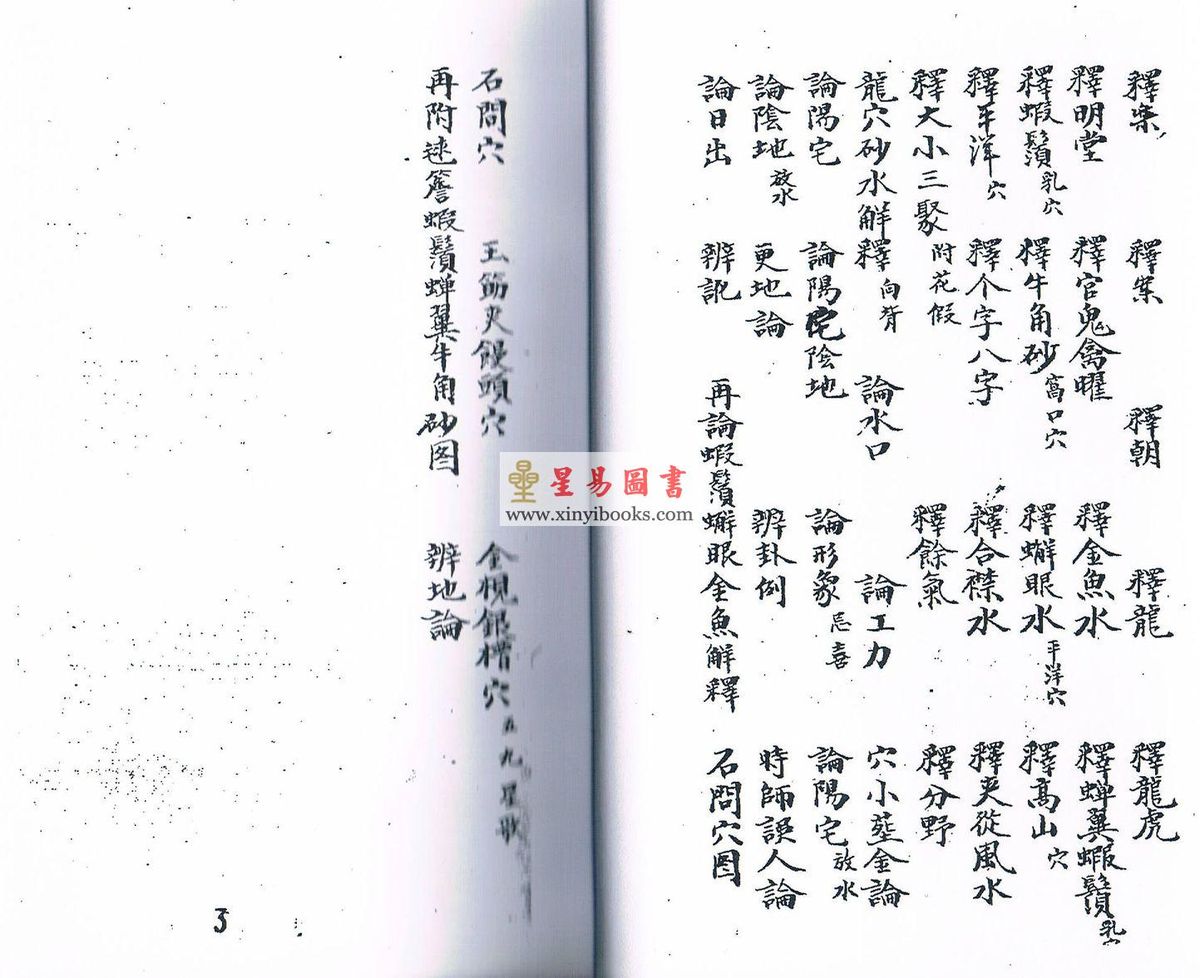 釋案 釋案 釋朝 釋龍 釋龍虎
釋明堂 釋官鬼禽曜 釋金魚水 釋蟬翼蝦鬚乳穴
釋蝦鬚乳穴 釋牛角砂窩口穴 釋蠏眼水平洋穴 釋高山穴
釋平洋穴 釋个字八字 釋合襟水 釋夾從風水
釋大小三聚附花假 釋餘氣 釋分野
龍穴砂水解釋向背 論水口 論工力 穴小塟金論
論陽宅 論陽宅陰地 論形象忌喜 論陽宅放水
論陰地放水 更地論 辨卦例 時師誤人論
論日出 辨訛 再論蝦鬚蠏眼金魚解釋 石間穴图
石間穴 玉筯夾饅頭穴 金槻銀槽穴 五九星歌
再附逑簷蝦鬚蟬翼牛角砂图 辨地論
3
星易圖書
www.xinyibooks.com